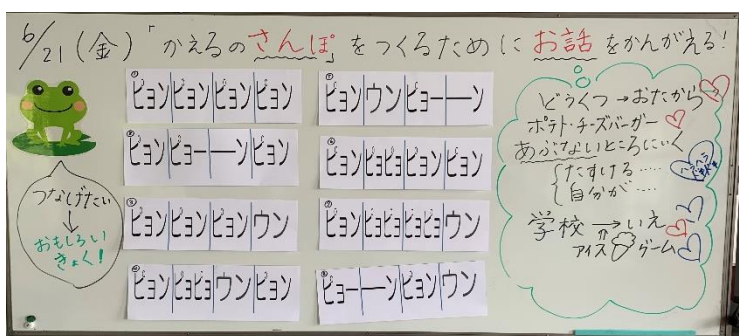 6/21(金)「かえるのさんぽ」をつくるために お話をかんがえる!
① ピョン ピョン ピョン ピョン
② ピョン ピョー ーン ピョン
③ ピョン ピョン ピョン ウン
④ ピョン ピョピョ ウン ピョン
⑤ ピョン ウン ピョー ーン
⑥ ピョン ピョピョ ピョン ピョン
⑦ ピョン ピョピョ ピョピョ ウン
⑧ ピョー ーン ピョン ウン
つなげたい
↓
おもしろい
きょく!
どうくつ→おたから
ポテト・チーズバーガー
あぶないところにいく
たすける……
自分が……
ハラハラ
学校→いえ
アイス
ゲーム